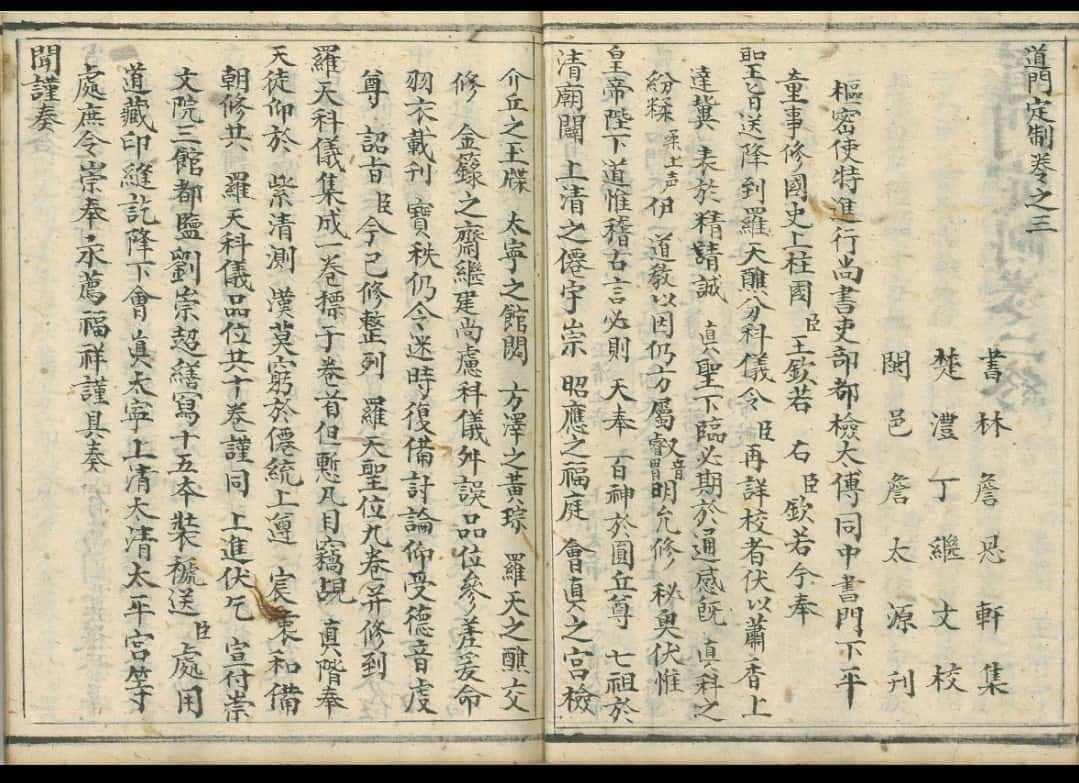 道門定制卷之三
書林詹恩軒集
楚澧丁繼文校
閩邑詹太源刊
樞密使特進行尚書吏部都檢太傅同中書門下平
童事修國史上柱國臣王欽若 右臣欽若今奉
聖旨送降到羅天醮分科儀令臣再詳校者伏以蕭香上
達冀表於精請誠 真聖下臨必期於通感旣 真科之
紛糅柔上声伊 道教以因仍方屬叡音胃明允修 秘奧伏惟
皇帝陛下道惟稽古言必則 天奉 百神於圓丘尊 七祖於
清廟闢 上清之僊宇崇 昭應之福庭 會真之宮檢
介丘之玉牒 太寧之館閎 方澤之黃琮 羅天之醮文
修 金籙之齋繼建尚慮科儀舛誤品位參差爰命
羽衣載刊 寶秩仍令迷時復備討論仰受德音虔
尊 詔旨臣今已修整列 羅天聖位九卷并修到
羅天科儀集成一卷標于卷首但慙凡目竊覘 真階奉
天徒仰於 紫清測 漢莫窮於僊統上遵 宸衷和備
朝修共 羅天科儀品位共十卷謹同 上進伏乞 宣付崇
文院三館都監劉崇超繕寫十五本裝褫送臣處用
道藏印縫訖降下會真太寧上清太清太平宮等
處庶令崇奉永薦福祥謹具奏
聞謹奏